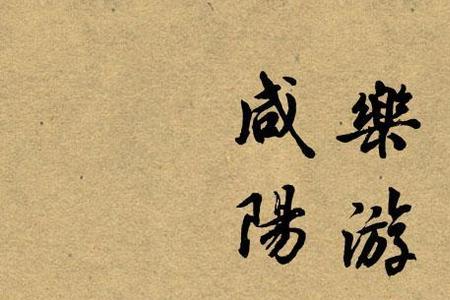 樂游
咸陽